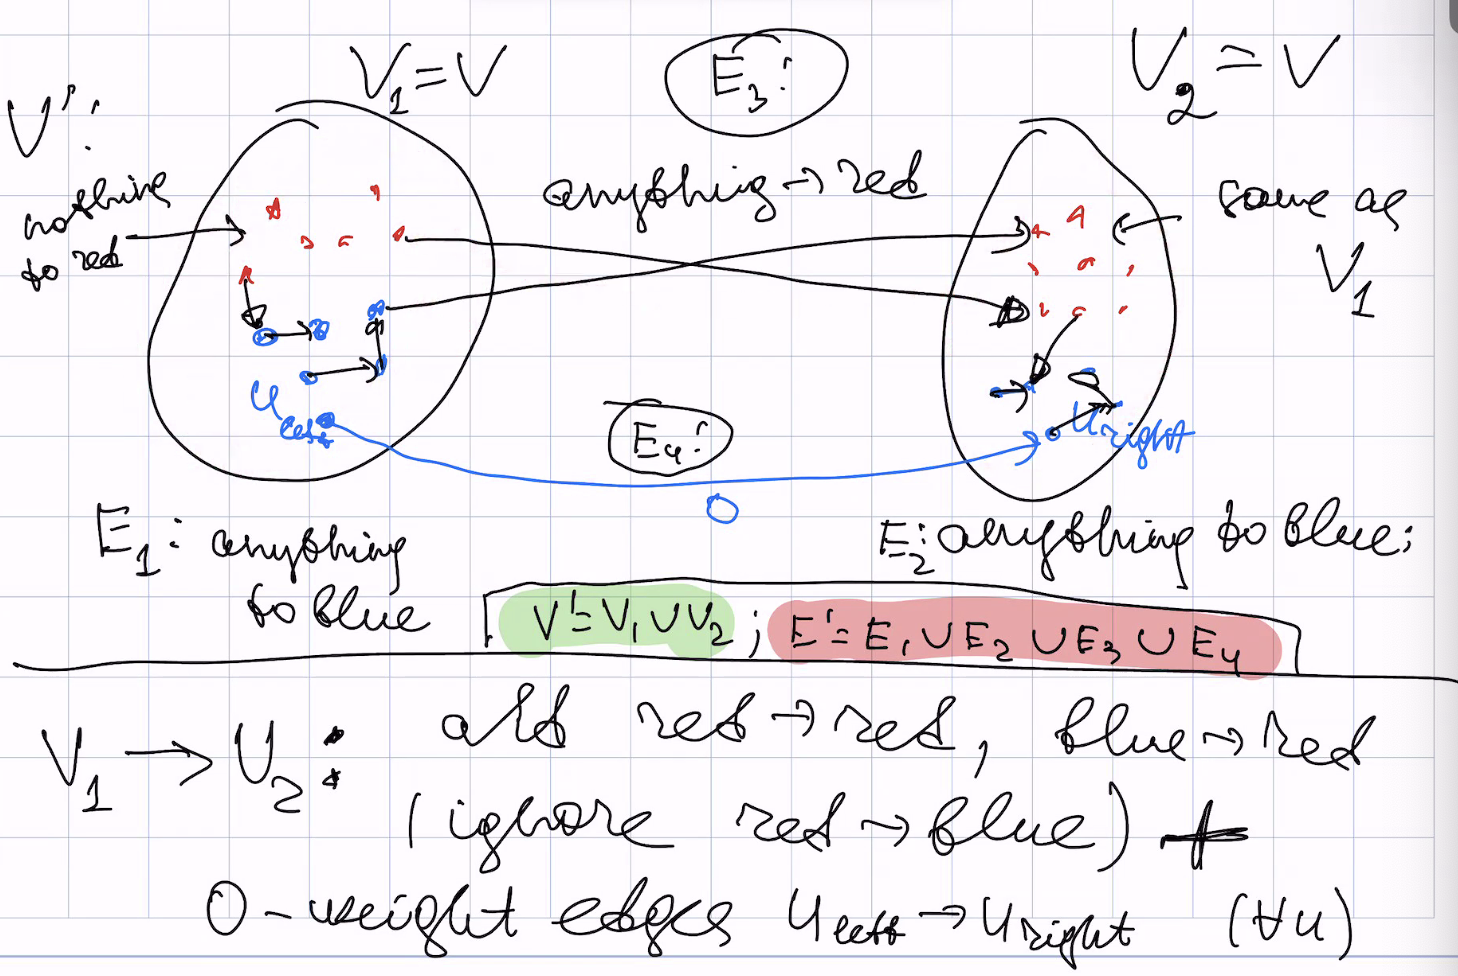 V₁ = V
E₃:
V₂ = V
V':
nothing
to red
anything → red
same as
V₁
U left
E₄:
U right
0
E₁: anything
to blue
E₂: anything to blue;
V' = V₁ ∪ V₂ ; E' = E₁ ∪ E₂ ∪ E₃ ∪ E₄
red → red, blue → red
(ignore red → blue) +
0-weight edges U left → U right (∀u)